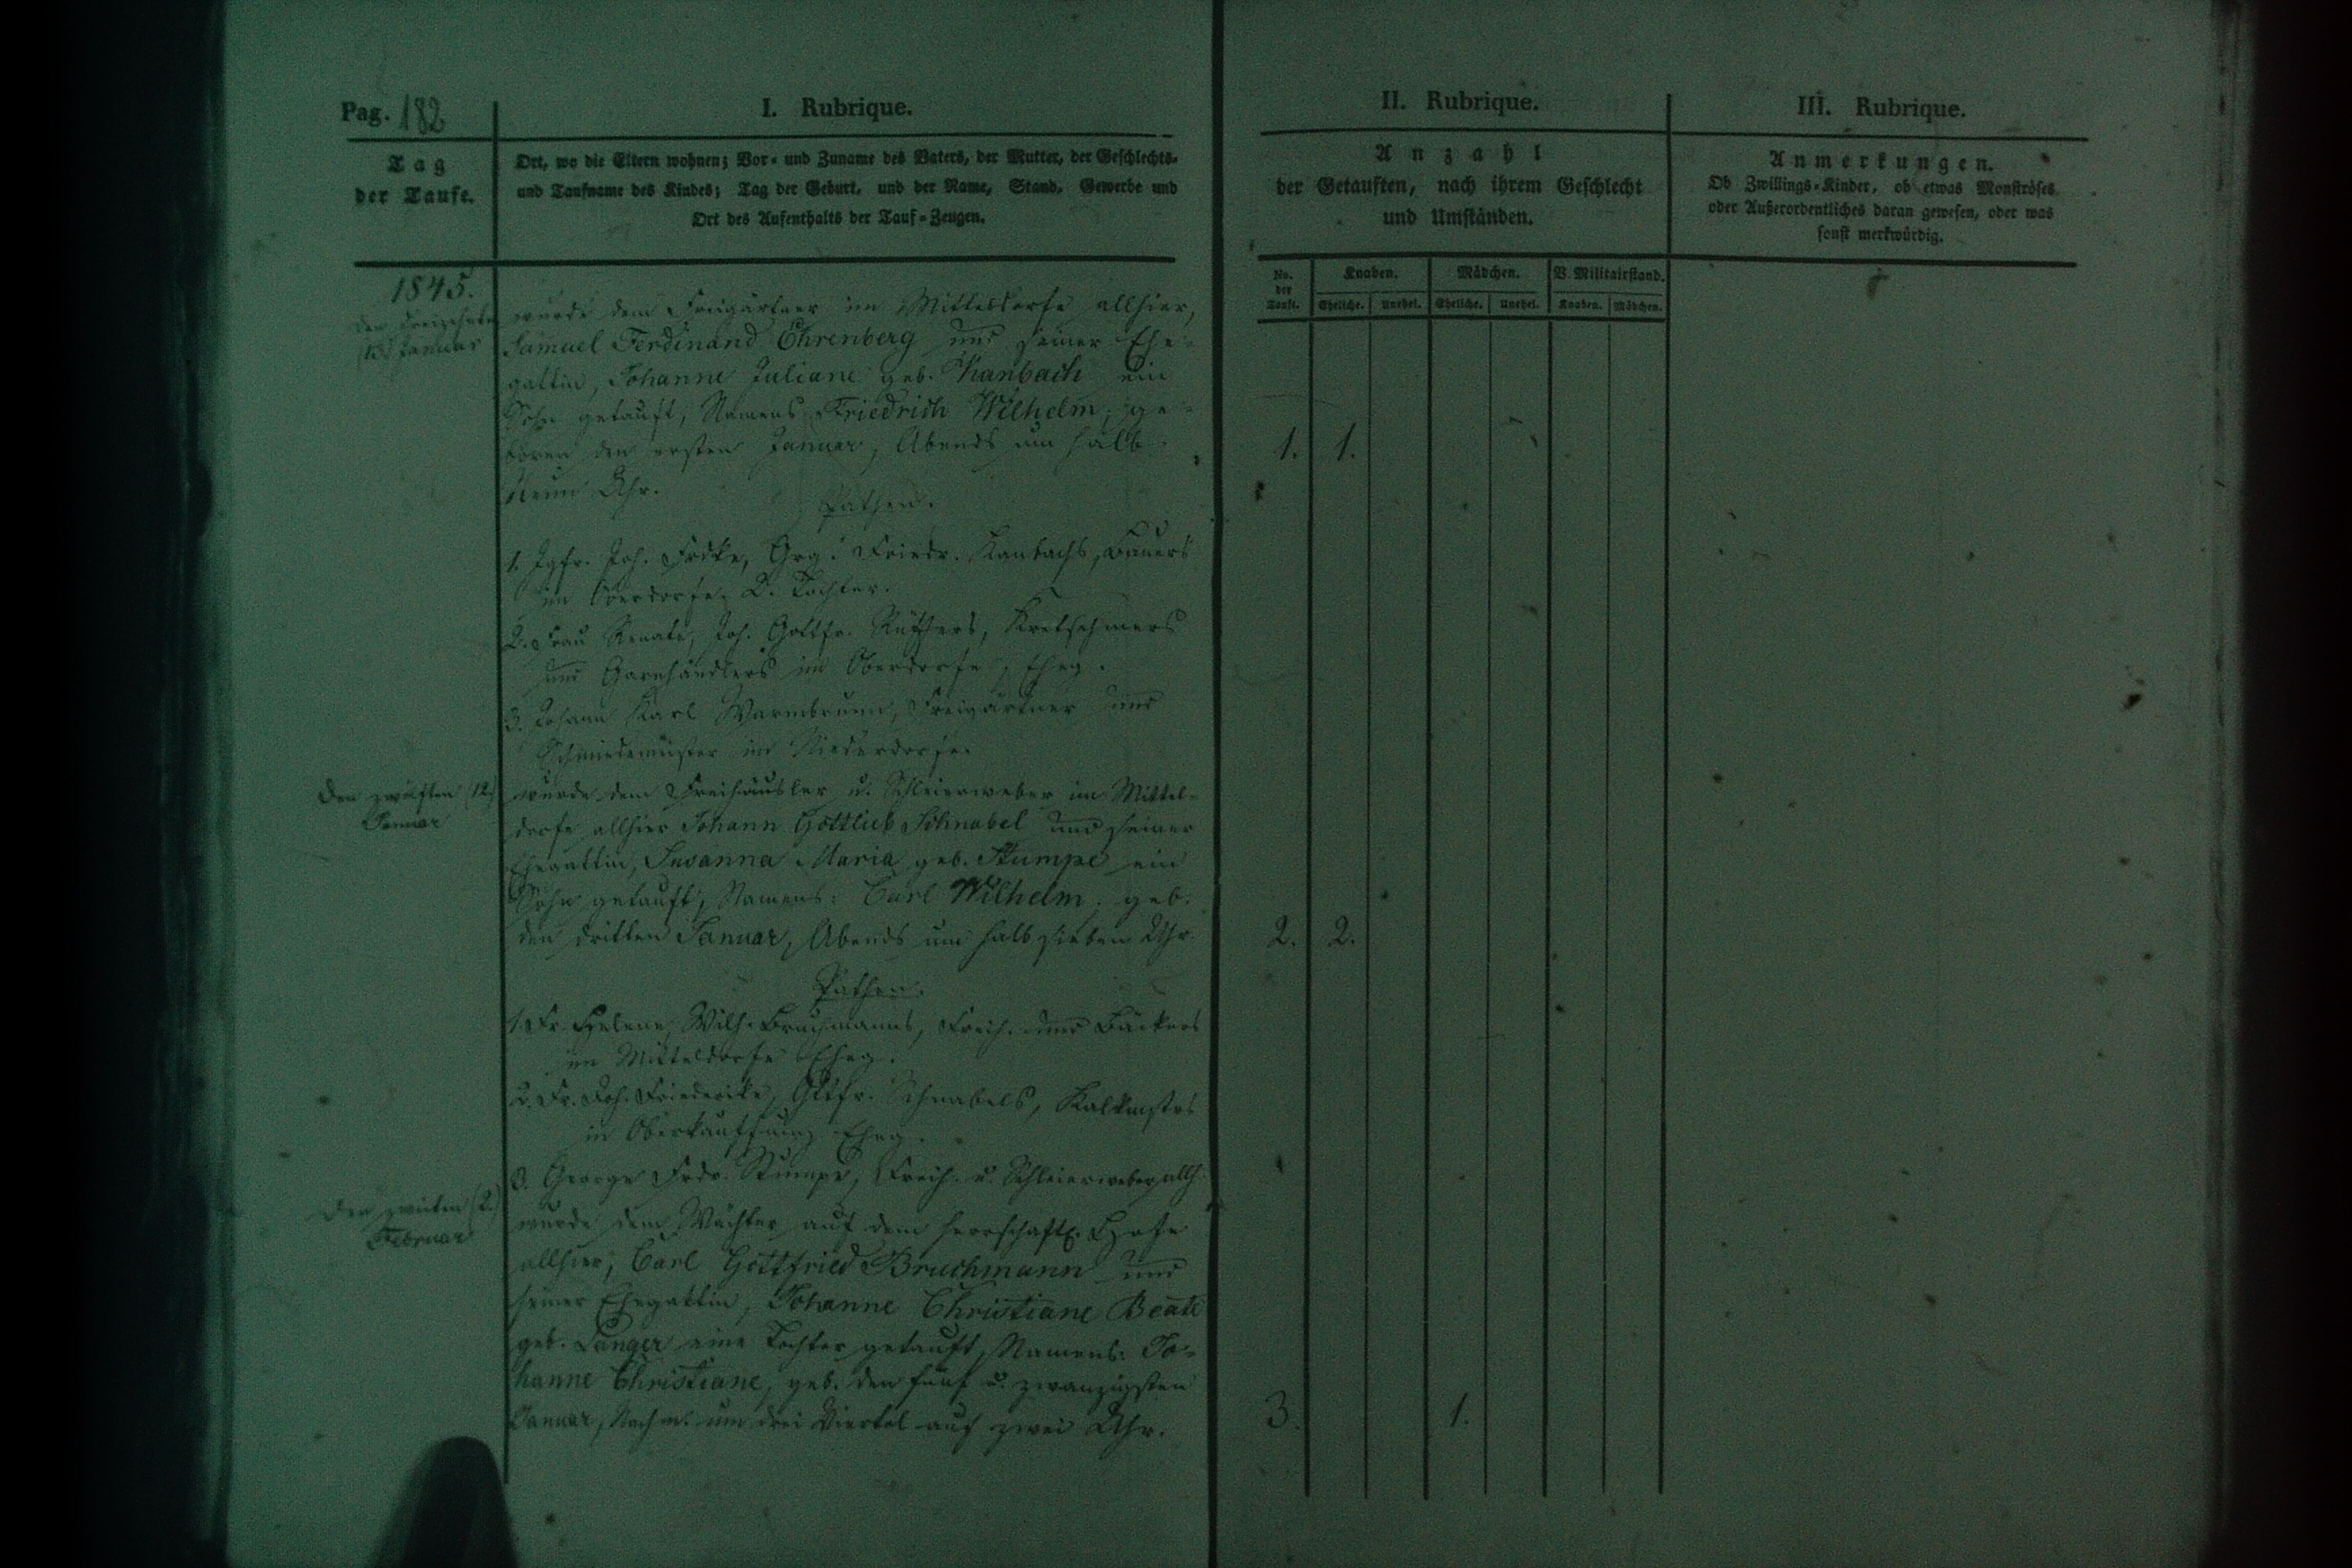 Pag. 182
I. Rubrique.
II. Rubrique.
III. Rubrique.
Tag
der Taufe.
Ort, wo die Eltern wohnen; Vor- und Zuname des Vaters, der Mutter, der Geschlechts-
und Taufname des Kindes; Tag der Geburt, und der Name, Stand, Gewerbe und
Ort des Aufenthalts der Tauf-Zeugen.
Anzahl
der Getauften, nach ihrem Geschlecht
und Umständen.
Anmerkungen.
Ob Zwillings-Kinder, ob etwas Monströses
oder Außerordentliches daran gewesen, oder was
sonst merkwürdig.
No.
der
Taufe.
Knaben.
Mädchen.
V. Militairstand.
Eheliche.
Unehel.
Eheliche.
Unehel.
Knaben.
Mädchen.
1845.
den dreizehnten
(13) Januar
wurde dem Freigärtner im Mitteldorfe allhier,
Samuel Ferdinand Ehrenberg und seiner Ehe-
gattin, Johanne Juliane geb. Kanbach ein
Sohn getauft, Namens Friedrich Wilhelm; ge-
boren den ersten Januar, Abends um halb
Neun Uhr.
1. 1.
Pathen.
1. Jgfr. Joh. Frdke, Grg. Friedr. Kanbachs, Bauers
im Oberdorfe, 2. Tochter.
2. Frau Renate, Joh. Gottfr. Kretschmers
und Garnhändlers im Oberdorfe, Eheg.
3. Johann Karl Warmbrunn, Freigärtner und
Schmiedemeister im Niederdorfe.
den zwölften (12)
Januar
wurde dem Freihäusler u. Schleierweber im Mittel-
dorfe allhier Johann Gottlieb Schnabel und seiner
Ehegattin, Susanna Maria geb. Stumpe ein
Sohn getauft, Namens: Carl Wilhelm; geb.
den dritten Januar, Abends um halb sieben Uhr.
2. 2.
Pathen.
1. Fr. Helene, Wilh. Bruchmanns, Freih. und Bäckers
im Mitteldorfe Eheg.
2. Fr. Joh. Friederike, Gttfr. Schnabels, Kalkmstrs
in Oberkauffung Eheg.
3. George Frdr. Stumpe, Freih. u. Schleierweber allh.
den zweiten (2.)
Februar
wurde dem Wächter auf dem herrschaftl. Hofe
allhier, Carl Gottfried Bruchmann und
seiner Ehegattin, Johanne Christiane Beate
geb. Langer eine Tochter getauft, Namens: Jo-
hanne Christiane, geb. den fünf u. zwanzigsten
Januar, Nachm. um drei Viertel auf zwei Uhr.
3. 1.